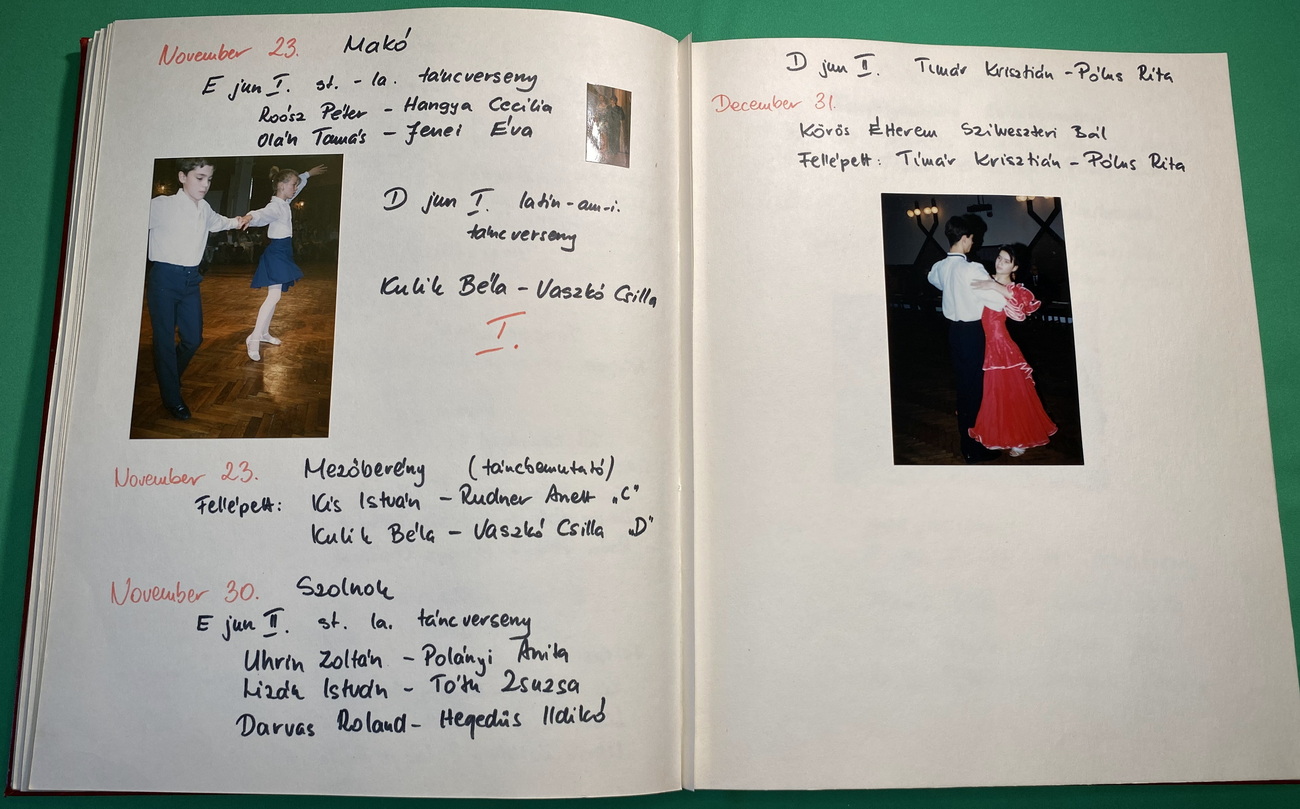 November 23. Makó
E jun I. st. - la. táncverseny
Roósz Péter - Hangya Cecília
Oláh Tamás - Jenei Éva
D jun I. latin-am-i.
táncverseny
Kulik Béla - Vaszkó Csilla
I.
November 23. Mezőberény (táncbemutató)
Fellépett: Kis István - Rudner Anett "C"
Kulik Béla - Vaszkó Csilla "D"
November 30. Szolnok
E jun II. st. la. táncverseny
Uhrin Zoltán - Polányi Anita
Lizák István - Tóth Zsuzsa
Darvas Roland - Hegedűs Ildikó
D jun II. Timár Krisztián - Pólus Rita
December 31.
Körös Étterem Szilveszteri Bál
Fellépett: Tímár Krisztián - Pólus Rita